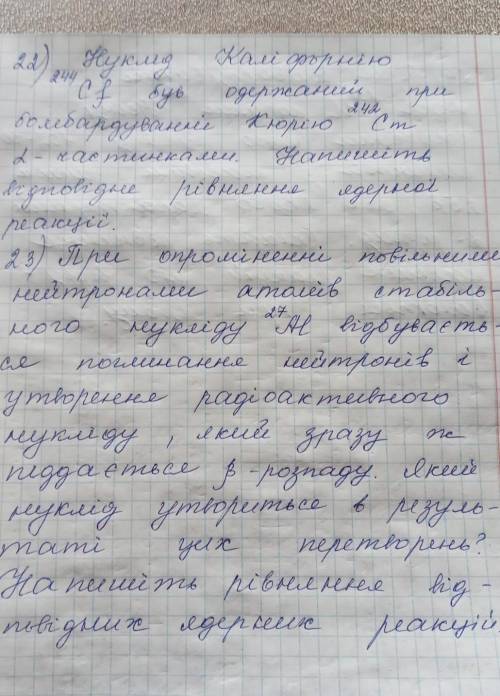 22) Нуклід Каліфорнію
²⁴⁴Cf був одержаний при
бомбардуванні Кюрію ²⁴²Cm
α-частинками. Напишіть
відповідне рівняння ядерної
реакції.
23) При опроміненні повільними
нейтронами атомів стабіль-
ного нукліду ²⁷Al відбуваєть-
ся поглинання нейтронів і
утворення радіоактивного
нукліду, який зразу ж
піддається β-розпаду. Який
нуклід утвориться в резуль-
таті цих перетворень?
Напишіть рівняння від-
повідних ядерних реакцій